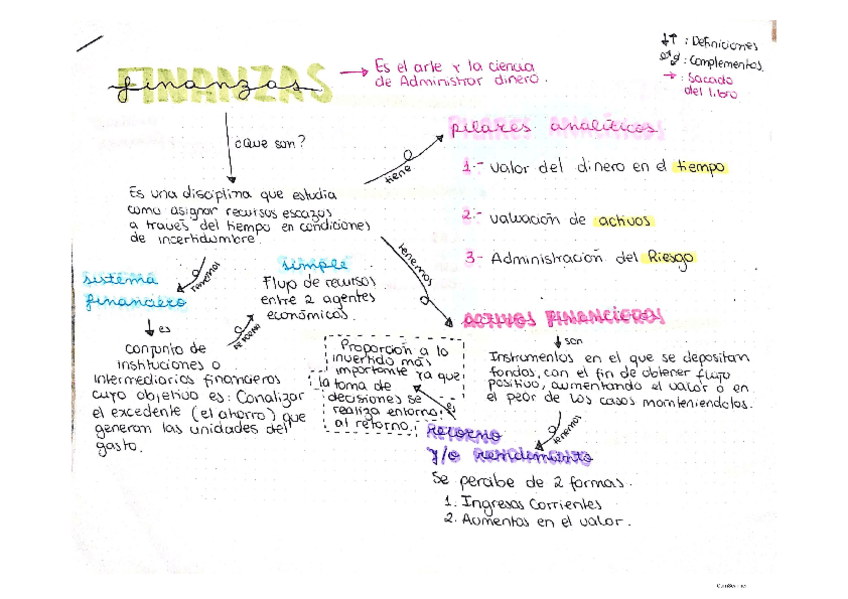 FINANZAS
finanzas
→ Es el arte y la ciencia
de Administrar dinero.
↓↑ : Definiciones
: Complementos.
→ : Sacado
del libro
¿Que son?
Es una disciplina que estudia
como asignar recursos escazos
a través del tiempo en condiciones
de incertidumbre.
tiene
PILARES ANALITICOS
pilares analíticos
1.- valor del dinero en el tiempo
2.- valuación de activos
3.- Administración del Riesgo
tenemos
sistema
financiero
es
conjunto de
instituciones o
intermediarios financieros
cuyo objetivo es: Canalizar
el excedente (el ahorro) que
generan las unidades del
gasto.
simple
Flujo de recursos
entre 2 agentes
económicos.
tenemos
ACTIVOS FINANCIEROS
son
Instrumentos en el que se depositan
fondos, con el fin de obtener flujo
positivo, aumentando el valor o en
el peor de los casos manteniendolos.
tenemos
RETORNO
y/o RENDIMIENTO
es
Proporción a lo
invertido más
importante ya que
la toma de
decisiones se
realiza entorno
al retorno.
Se percibe de 2 formas.
1. Ingresos Corrientes
2. Aumentos en el valor.
CamScanner